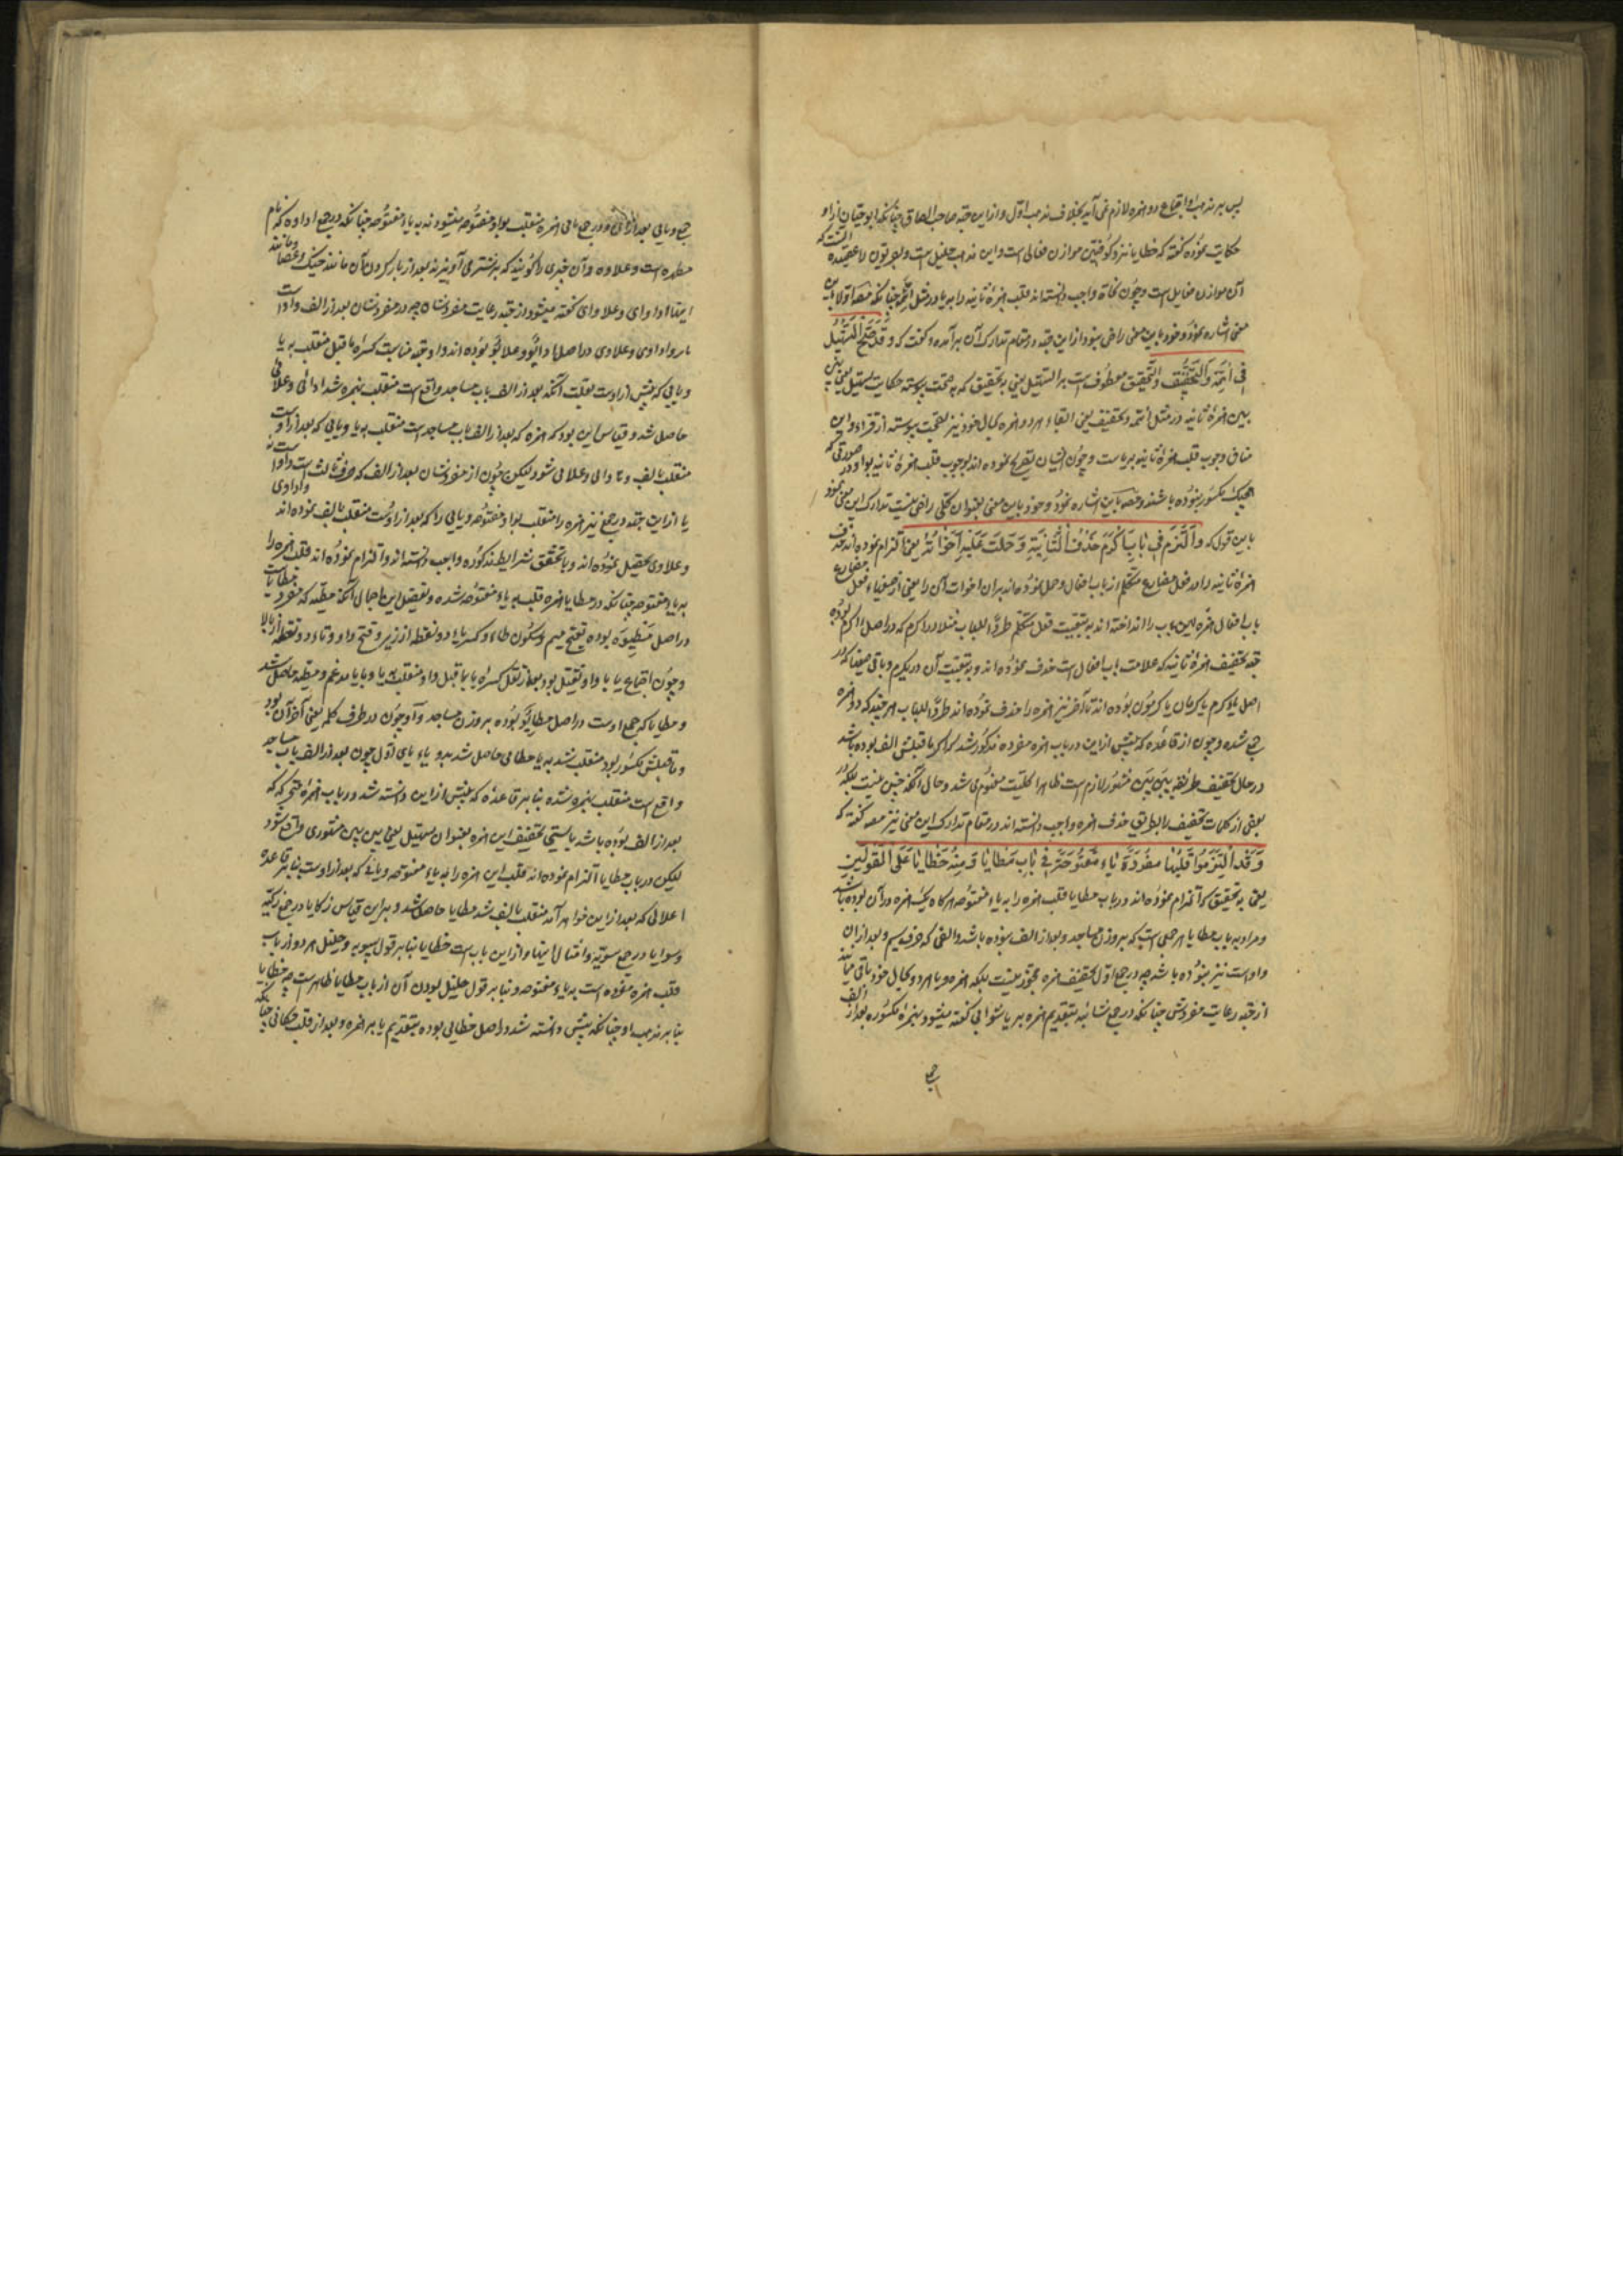 پس بر مذهب او اجتماع دو همزه لازم نمی آید بخلاف مذهب اول و از این جهة صاحب الصحاح چنانکه ابو حیان از او
حکایت نموده گفته که خطایا نزد کوفیین موازن فعالی است و این مذهب خلیل است و بصریون را عقیده آنست که
آن موازن فعایل است و چون نحاة واجب دانسته اند قلب همزهٔ ثانیه را به یا در مثل ائمة چنانکه مصه اولا باین
معنی اشاره نمود و خود باین معنی راضی نبود از این جهة در مقام تدارک آن بر آمده و گفت که و قد صح التسهیل
فی ائمة و التحقیق و التحقیق معطوف است بر التسهیل یعنی به تحقیق که به صحت پیوسته حکایت تسهیل یعنی بین
بین همزهٔ ثانیه در مثل ائمه و تحقیق یعنی ابقاء هر دو همزه بحال خود نیز بصحت پیوسته از قراء و این
منافی وجوب قلب همزهٔ ثانیه به یا است و چون ایشان تصریح نموده اند بوجوب قلب همزهٔ ثانیه بواو در صورتی که
هیچیک مکسور نبوده باشند و مصه باین اشاره نمود و خود باین معنی بعنوان کلی راضی نیست تدارک این معنی نمود
باین قول که و التزم فی باب اکرم حذف الثانیة و حملت علیه اخواته یعنی التزام نموده اند حذف
همزهٔ ثانیه را در فعل مضارع متکلم از باب افعال و حمل نموده اند بر آن اخوات آن را یعنی از صیغهاء فعل مضارع
باب افعال همزه این باب را انداخته اند به تبعیت فعل متکلم طردا للباب مثلا در اکرم که در اصل ااکرم بوده
جهة تخفیف همزهٔ ثانیه که علامت باب افعال است حذف نموده اند و به تبعیت آن در یکرم و باقی صیغها که در
اصل یااکرم یاکرمان یاکرمون بوده اند تا آخر نیز همزه را حذف نموده اند طردا للباب هر چند که دو همزه
جمع نشده و چون از قاعدهٔ که پیش از این در باب همزه مفرده مذکور شد که اگر ما قبلش الف بوده باشد
در حال تخفیف طریقه بین بین مشهور لازم است ظاهرا کلیت مفهوم می شد و حال آنکه چنین نیست بلکه در
بعضی از کلمات تخفیف را بطریق حذف همزه واجب دانسته اند در مقام تدارک این معنی نیز مصه گفته که
و قد التزموا قلبها مفردة یاء مفتوحة فی باب مطایا و منه خطایا علی القولین
یعنی به تحقیق که التزام نموده اند در باب مطایا قلب همزه را به یاء مفتوحه هر گاه یک همزه در آن بوده باشد
و مراد به باب مطایا هر جمعی است که بر وزن مساجد و بعد از الف بوده باشد و الفی که حرف سیم و بعد از آن
واو است نیز نبوده باشد چه در جمع اول تخفیف همزه مجوز نیست بلکه همزه و یا هر دو بحال خود باقی میمانند
از جهة رعایت مفردش چنانکه در جمع شائیه بتقدیم همزه بر یا شوائی گفته میشود بهمزهٔ مکسوره بعد از الف
جمع
جمع و یایی بعد از او و در جمع ثانی همزه منقلب بواو مفتوحه میشود نه به یاء مفتوحه چنانکه در جمع اداوه که نام
مطهره است و علاوه و آن چیزی را گویند که بر شتر می آویزند بعد از بار کردن آن مانند خیک و عصا و مانند
اینها اداوای و علاوای گفته میشود از جهة رعایت مفردشان چه در مفردشان بعد از الف واو است
اداوی و علاوی در اصل ادائو و علائو بوده اند واو جهة مناسبت کسرهٔ ما قبل منقلب به یا
و یایی که پیش از او است بعلت آنکه بعد از الف باب مساجد واقع است منقلب بهمزه شد ادائی و علائی
حاصل شد و قیاس این بود که همزه که بعد از الف باب مساجد است منقلب به یا و یایی که بعد از او است
منقلب بالف و لیکن چون از مفردشان بعد از الف که حرف ثالث است واو است نه
یا از این جهة در جمع نیز همزه را منقلب بواو مفتوحه و یایی را که بعد از او است منقلب بالف نموده اند و اداوی
و علاوی تحصیل نموده اند و با تحقق شرایط مذکوره واجب دانسته اند و التزام نموده اند قلب همزه را
به یاء مفتوحه چنانکه در مطایا همزه قلب به یاء مفتوحه شده و تفصیل این اجمال آنکه مطیه که مفرد مطایا است
در اصل مطیوه بوده بفتح میم و سکون طاء و کسر یاء دو نقطه از زیر و فتح واو و تاء دو نقطه از بالا
و چون اجتماع یا با واو ثقیل بود بعد از نقل کسرهٔ یا بما قبل واو منقلب به یا و یا با یا مدغم و مطیه حاصل شد
و مطایا که جمع اوست در اصل مطایو بوده بر وزن مساجد و واو چون در طرف کلمه یعنی آخر آن بود
و ما قبلش مکسور بود منقلب شد به یا مطایی حاصل شد بدو یاء یای اول چون بعد از الف باب مساجد
واقع است منقلب بهمزه شده بنا بر قاعدهٔ که پیش از این دانسته شد در باب همزهٔ متحرکه که
بعد از الف بوده باشد بایستی تخفیف این همزه بعنوان تسهیل یعنی بین بین مشهوری واقع شود
لیکن در باب مطایا التزام نموده اند قلب این همزه را به یاء مفتوحه و یایی که بعد از او است بنا بر قاعدهٔ
اعلالی که بعد از این خواهد آمد منقلب بالف شد مطایا حاصل شد و بر این قیاس زکایا در جمع زکیه
و سوایا در جمع سویه و امثال اینها و از این باب است خطایا بنا بر قول سیبویه و خلیل هر دو از باب
قلب همزه مفرده است به یاء مفتوحه و بنا بر قول خلیل بودن آن از باب مطایا ظاهر است چه خطایا
بنا بر مذهب او چنانکه پیش دانسته شد در اصل خطایی بوده بتقدیم یا بر همزه و بعد از قلب مکانی چنانکه